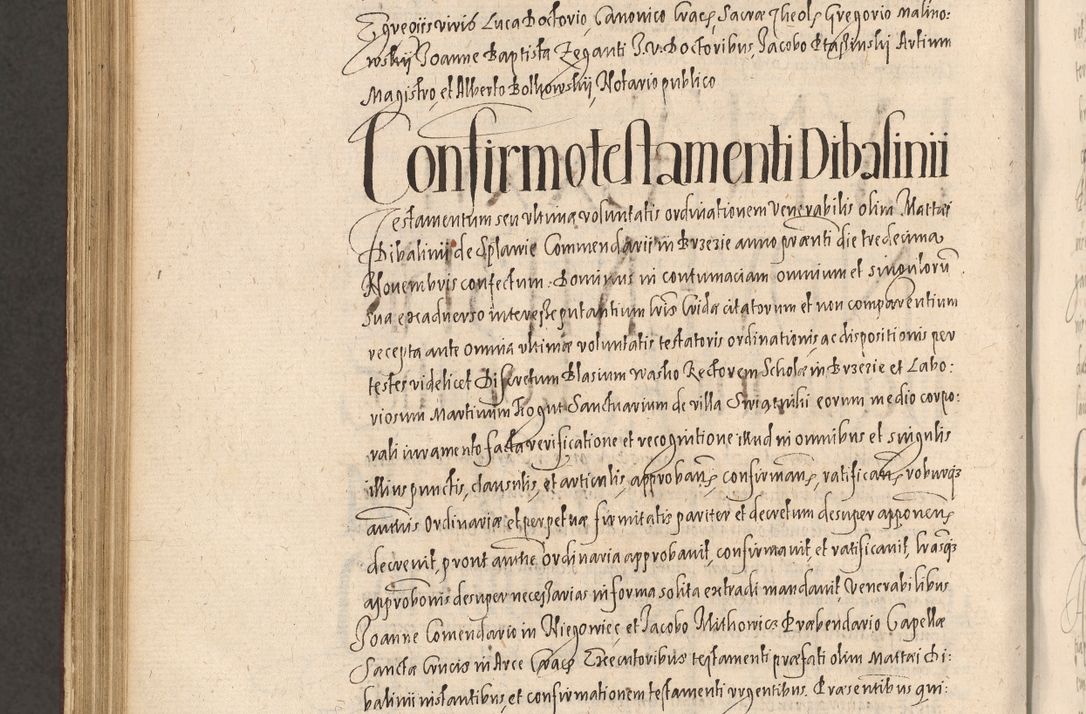 Egregiis viris Luca Doctorio, Canonico Crac, Sacræ Theol, Gregorio Malino:
wskij Joanne Baptista Zeganti J.V. Doctoribus, Jacobo Artium
Magistro, et Alberto Bolkowskij, Notario publico
Confirmo testamenti Dibalinii
Testamentum seu ultimæ voluntatis ordinationem Venerabilis olim Mattæi
Dibalinii de Commendarii in Brzezie anno prænti die tredecima
Novembris confectum. Dominus in contumaciam omnium et singulorũ
sua ex adverso interesse putantium citatorum et non comparentium
recepta ante omnia ultimæ voluntatis testatoris ordinationis, ac dispositionis per
testes videlicet Discretum Blasium Washo Rectorem Scholæ in Brzezie et Labo:
riosum Martinum Kogut Sanctuarium de villa eorum medio corpo:
rali iuramento facta verificatione et recognitione illud in omnibus et singulis
illius punctis, clausulis, et articulis, approban, confirman, ratifican, roburq
authis Ordinariæ et perpetuæ firmitatis pariter et decretum desuper apponen,
decrevit, prout authe Ordinaria approbavit, confirmavit, et ratificavit, lrasq
approbonis desuper necessarias in forma solita extradi mandavit, Venerabilibus
Joanne Comendario in Niegowiec, et Jacobo Mithowicz Præbendario Capellæ
Sanctæ Crucis in Arce Crac, Executoribus testamenti præfati olim Mattæi Di:
balinii instantibus, et confirmationem testamenti urgentibus. Præsentibus qui: